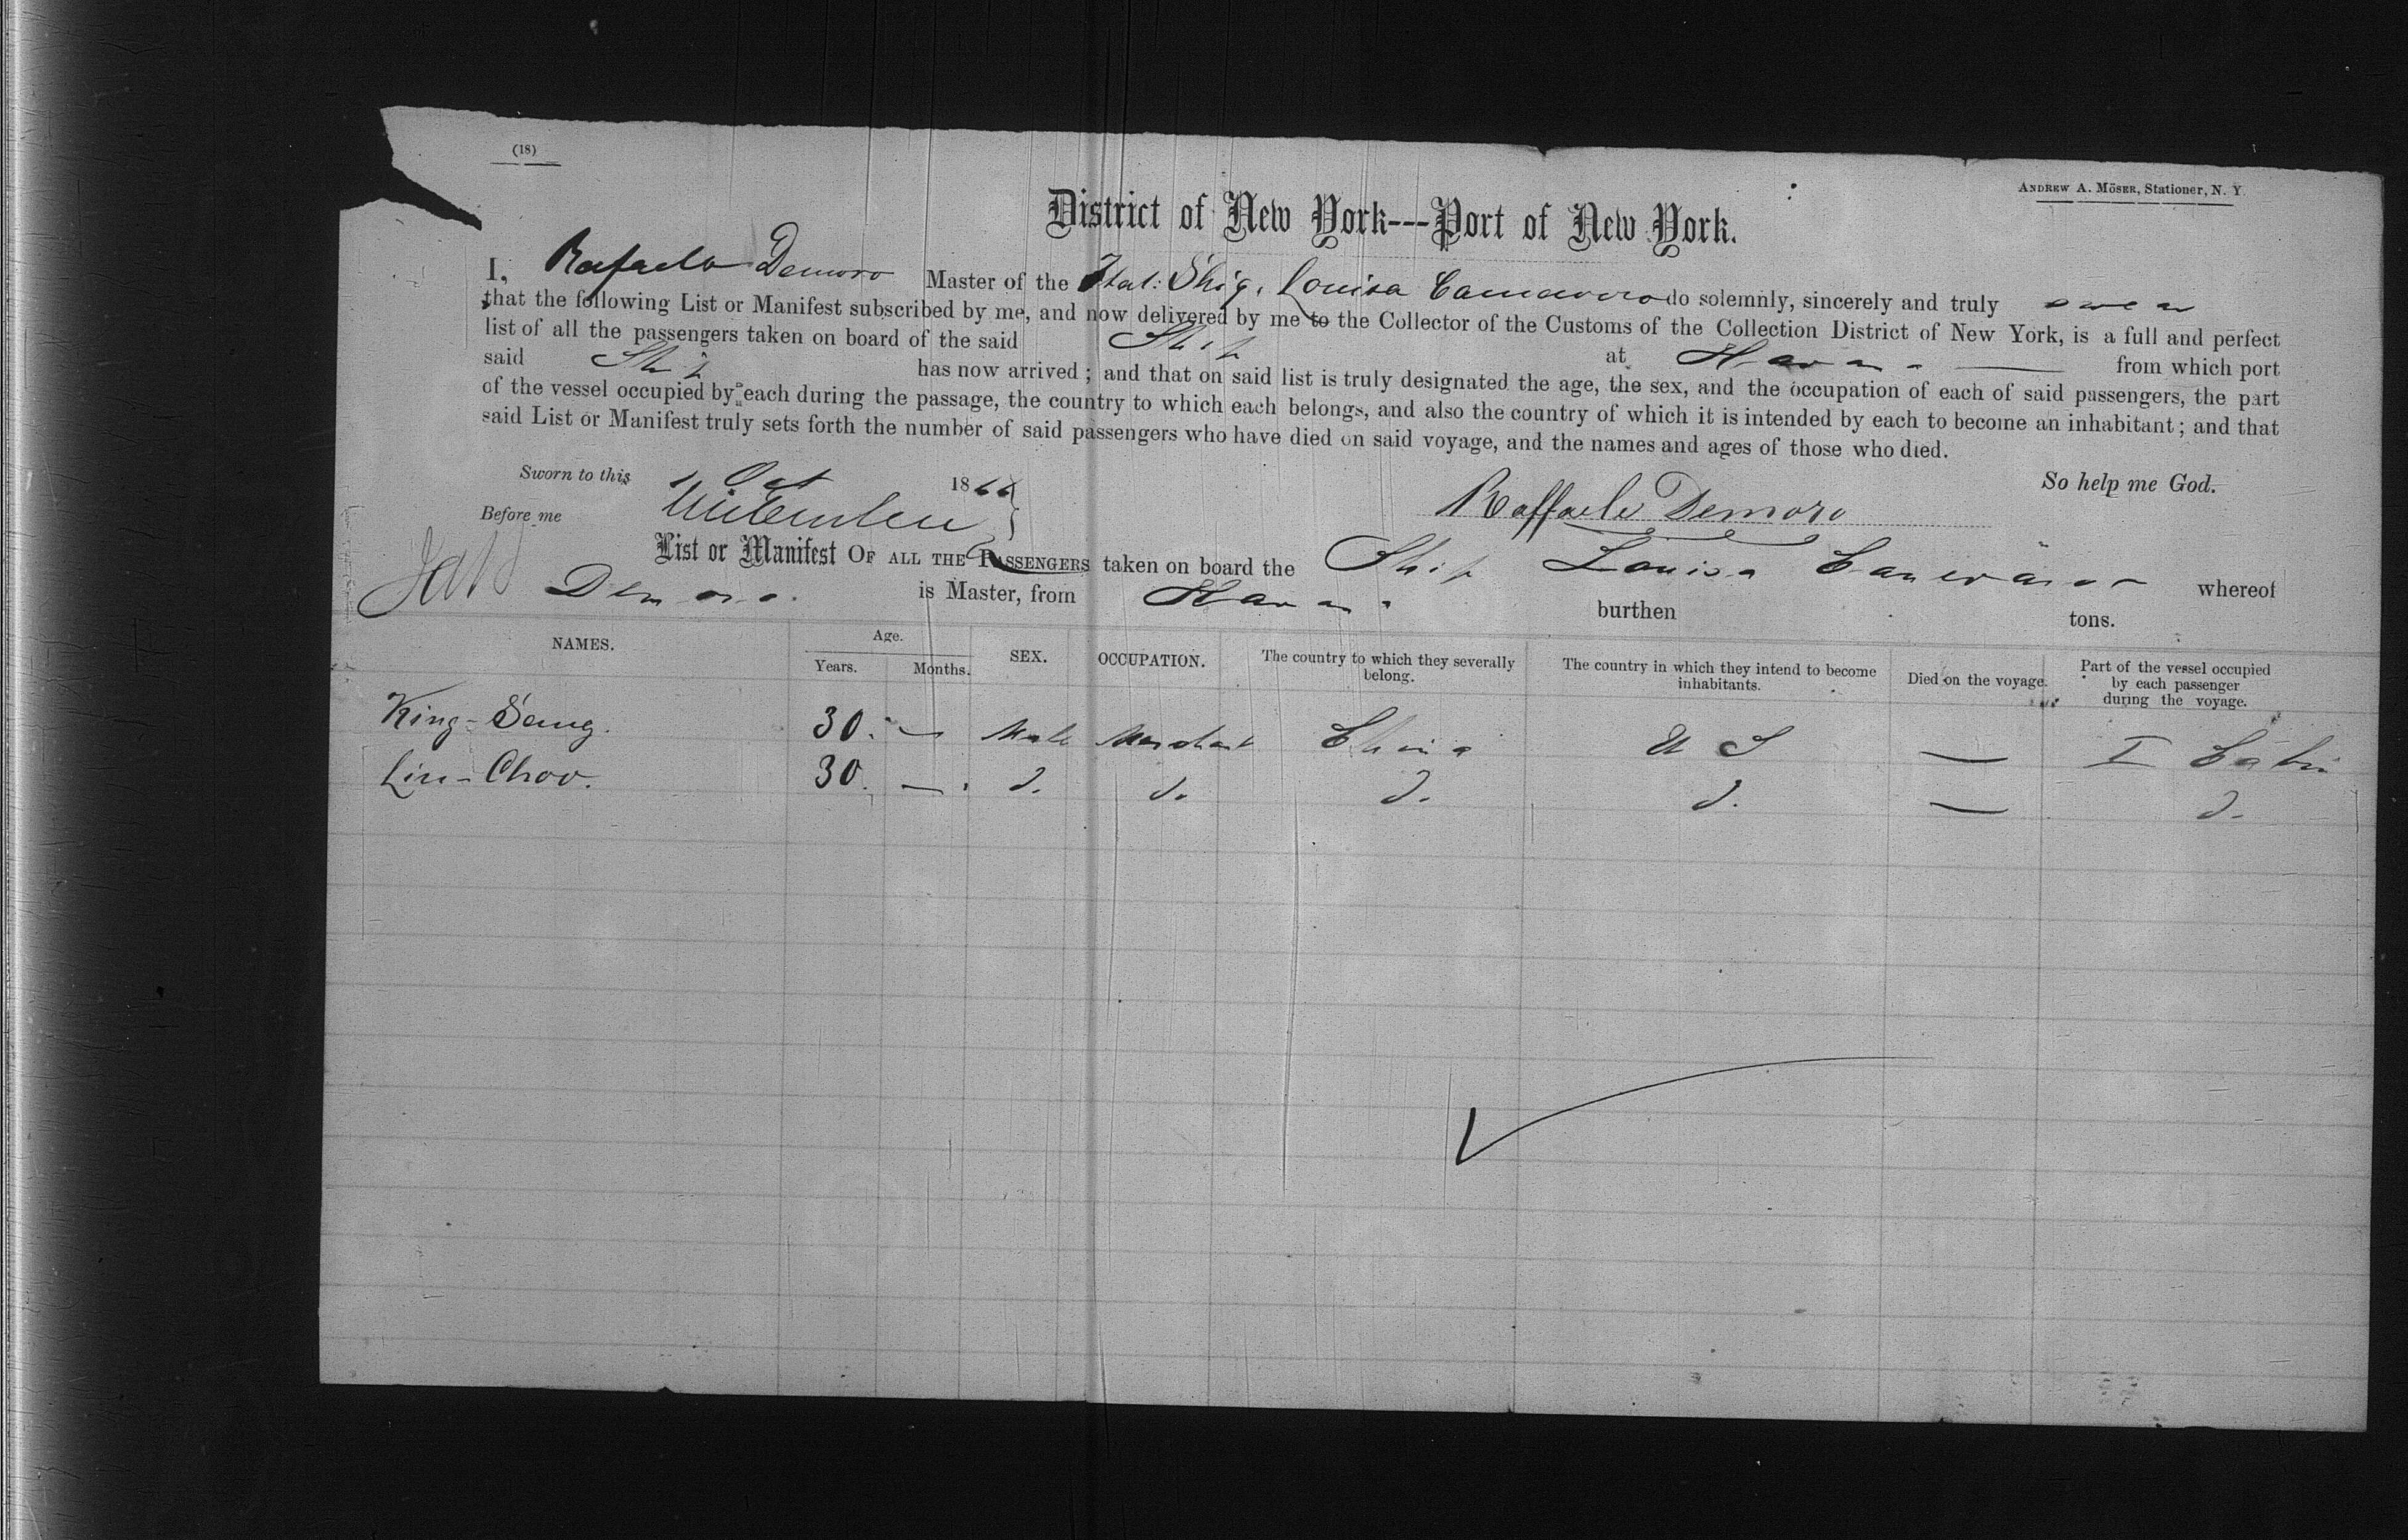 (18)
ANDREW A. MÖSER, Stationer, N. Y.
District of New York---Port of New York.
I, Rafaele Demoro Master of the Ital: Ship. Louisa do solemnly, sincerely and truly swear
that the following List or Manifest subscribed by me, and now delivered by me to the Collector of the Customs of the Collection District of New York, is a full and perfect
list of all the passengers taken on board of the said Ship at Havana from which port
said Ship has now arrived; and that on said list is truly designated the age, the sex, and the occupation of each of said passengers, the part
of the vessel occupied by each during the passage, the country to which each belongs, and also the country of which it is intended by each to become an inhabitant; and that
said List or Manifest truly sets forth the number of said passengers who have died on said voyage, and the names and ages of those who died.
So help me God.
Sworn to this 1 Oct 1866
Before me
Raffaele Demoro
List or Manifest OF ALL THE PASSENGERS taken on board the Ship Louisa whereof
Demoro. is Master, from Havana burthen tons.
NAMES. Age. Years. Months. SEX. OCCUPATION. The country to which they severally belong. The country in which they intend to become inhabitants. Died on the voyage. Part of the vessel occupied by each passenger during the voyage.
King-Sang. 30. — Male Merchant China U S — I Cabin
Lin-Choo. 30. — d. d. d. d. — d.